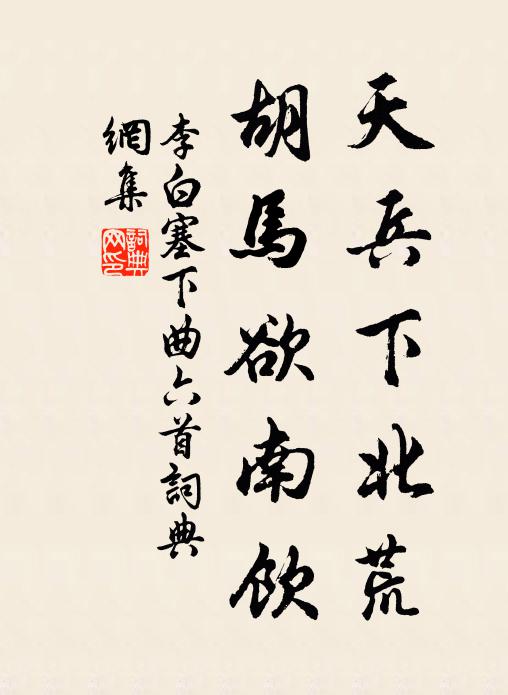 天兵下北荒
胡馬欲南飲
李白塞下曲六首詞典
網集
詞典網印